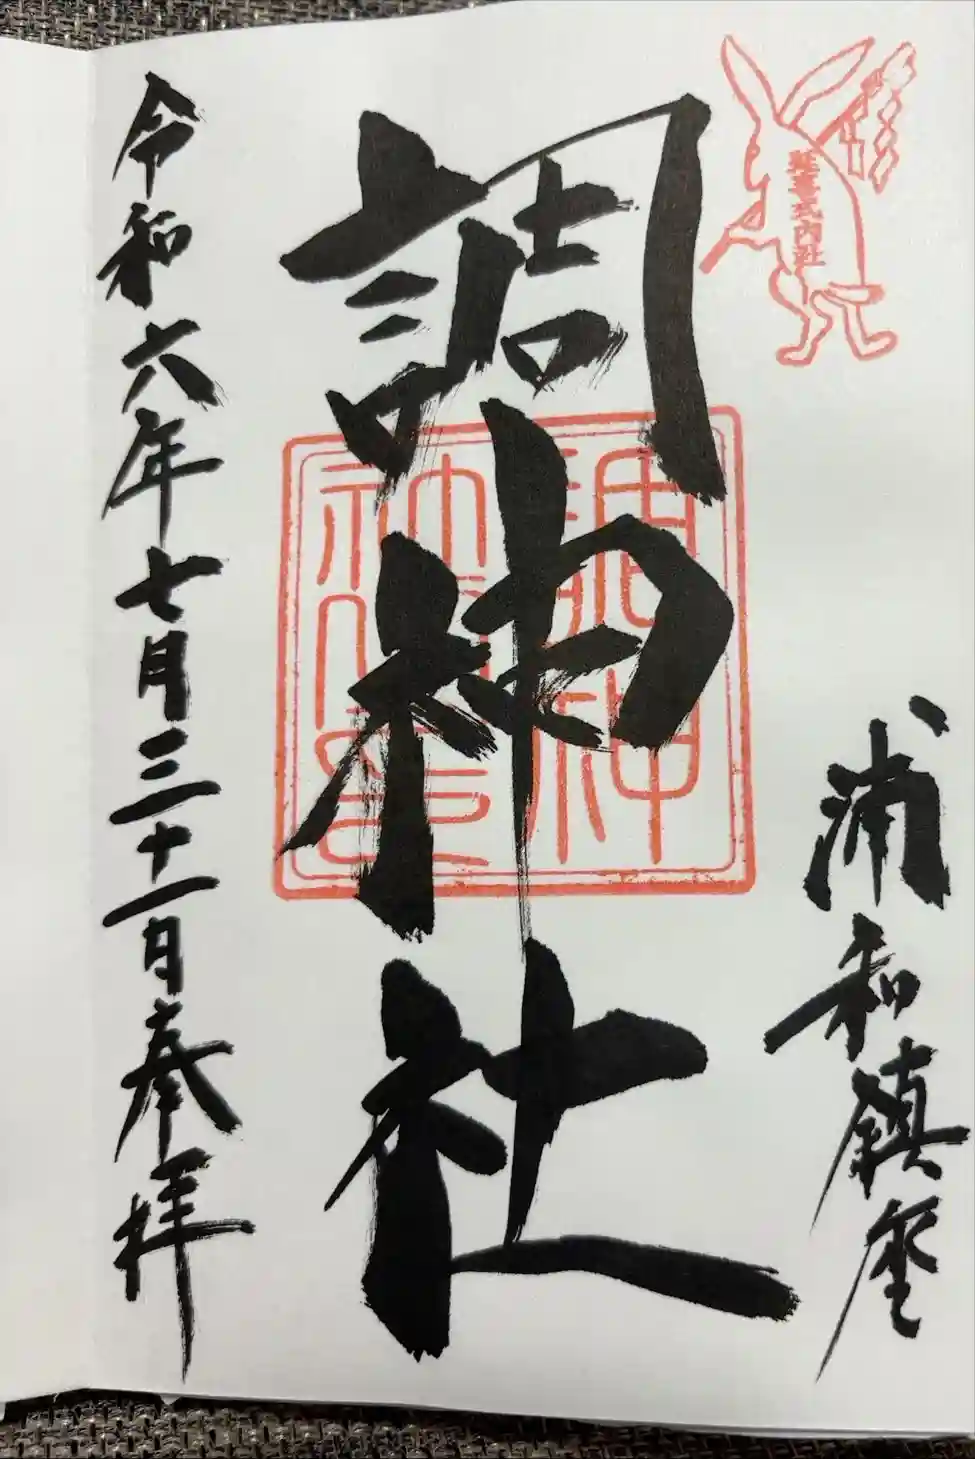 延喜式内社
浦和鎮座
調神社
調神
社印
令和六年七月三十一日奉拝